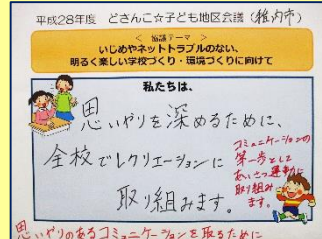 平成28年度 どさんこ☆子ども地区会議（稚内市）
＜ 協議テーマ ＞
いじめやネットトラブルのない、
明るく楽しい学校づくり・環境づくりに向けて
私たちは、
思いやりを深めるために、
全校でレクリエーションに
取り組みます。
コミュニケーションの
第一歩として
あいさつ運動に
取り組み
ます。
思いやりのあるコミュニケーションを取るために